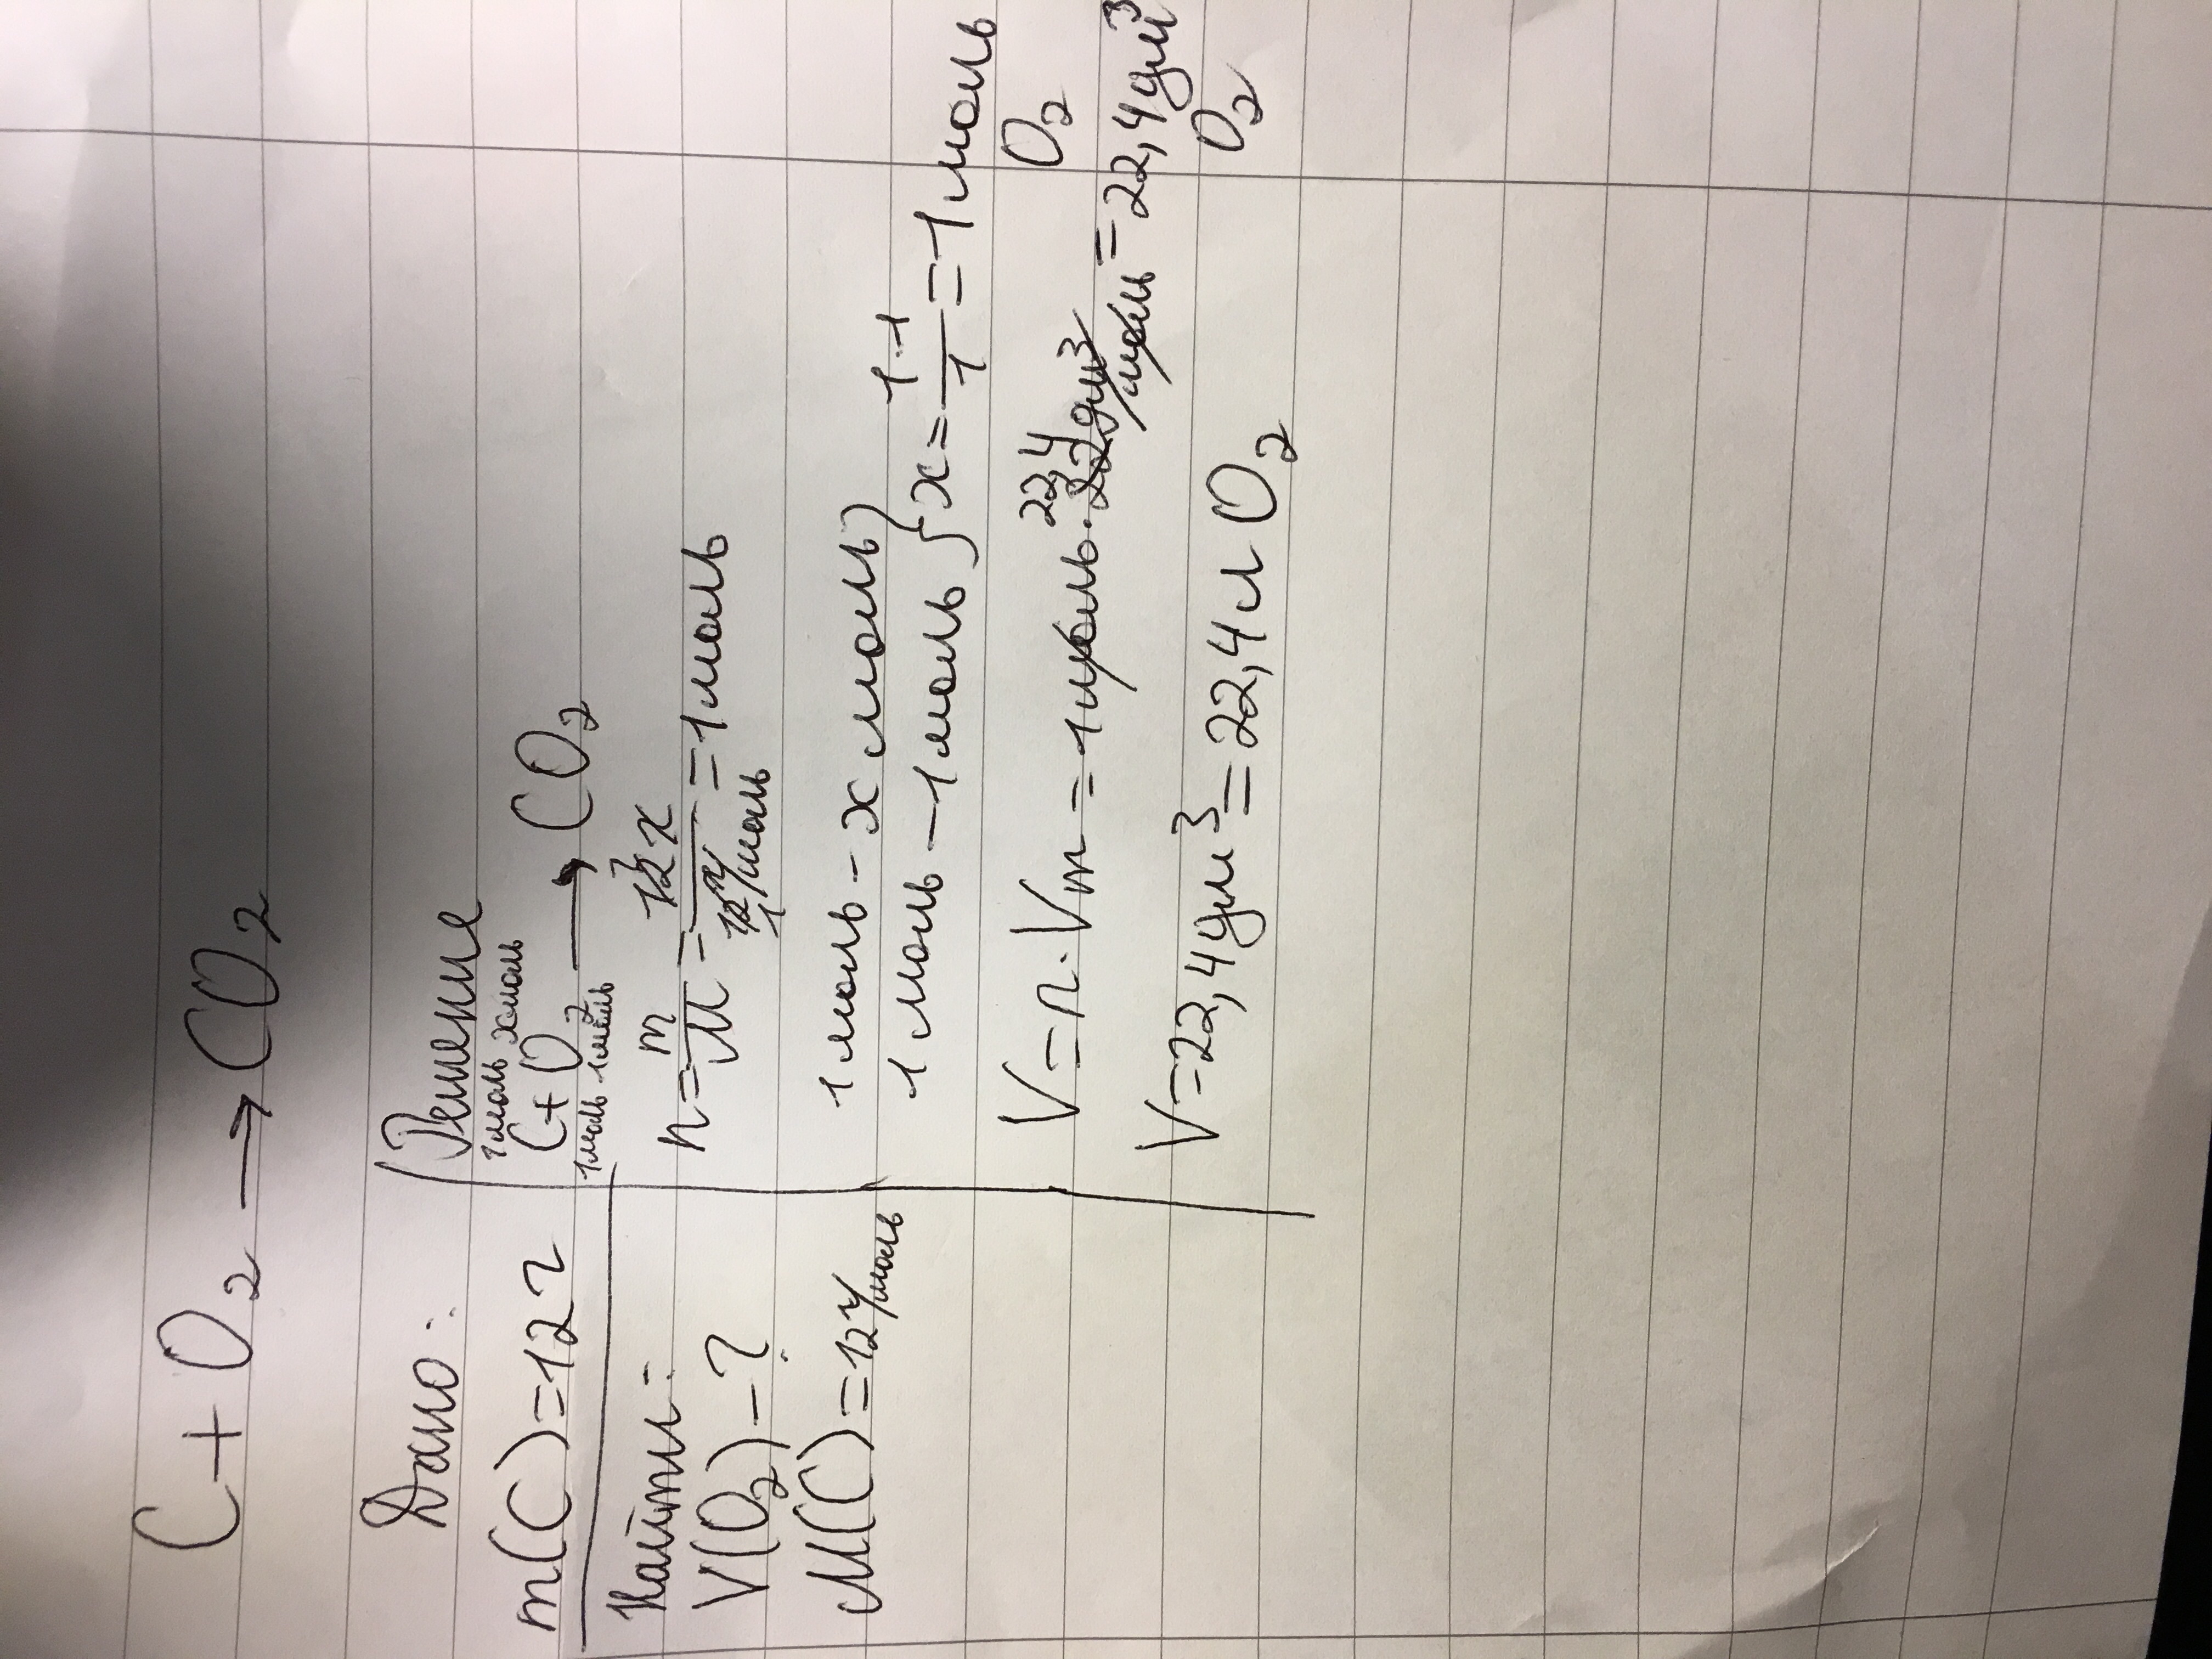 C + O₂ → CO₂
Дано:
m(C)=12 г
Найти:
V(O₂)-?
M(C)=12 г/моль
Решение
1моль xмоль
C+O₂ → CO₂
1моль 1моль
n = m/M = 12 г/12 г/моль = 1моль
1 моль - x моль}
1 моль - 1 моль} x = 1·1/1 = 1 моль
O₂
V = n · Vm = 1 моль · 22,4 дм³/моль = 22,4 дм³
O₂
V = 22,4 дм³ = 22,4 л O₂